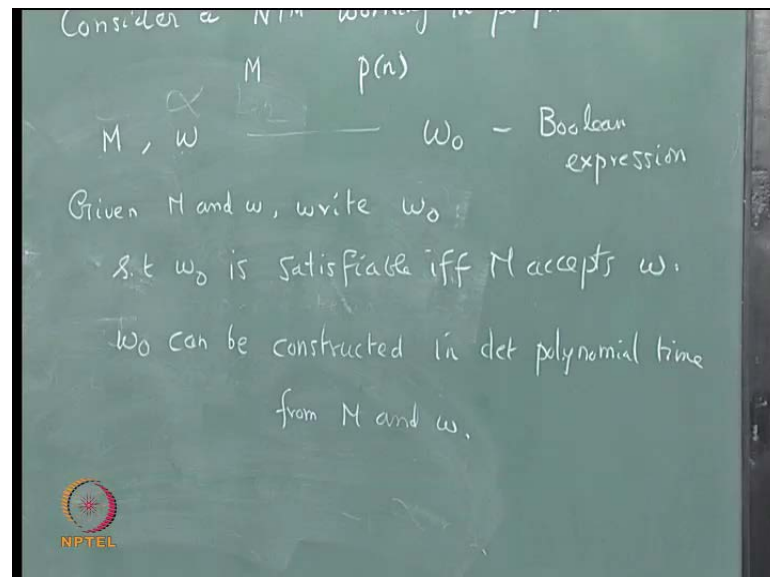 Consider a NTM working in
M p(n)
M, w ——— w₀ - Boolean
expression
Given M and w, write w₀
s.t w₀ is satisfiable iff M accepts w.
w₀ can be constructed in det polynomial time
from M and w.
NPTEL